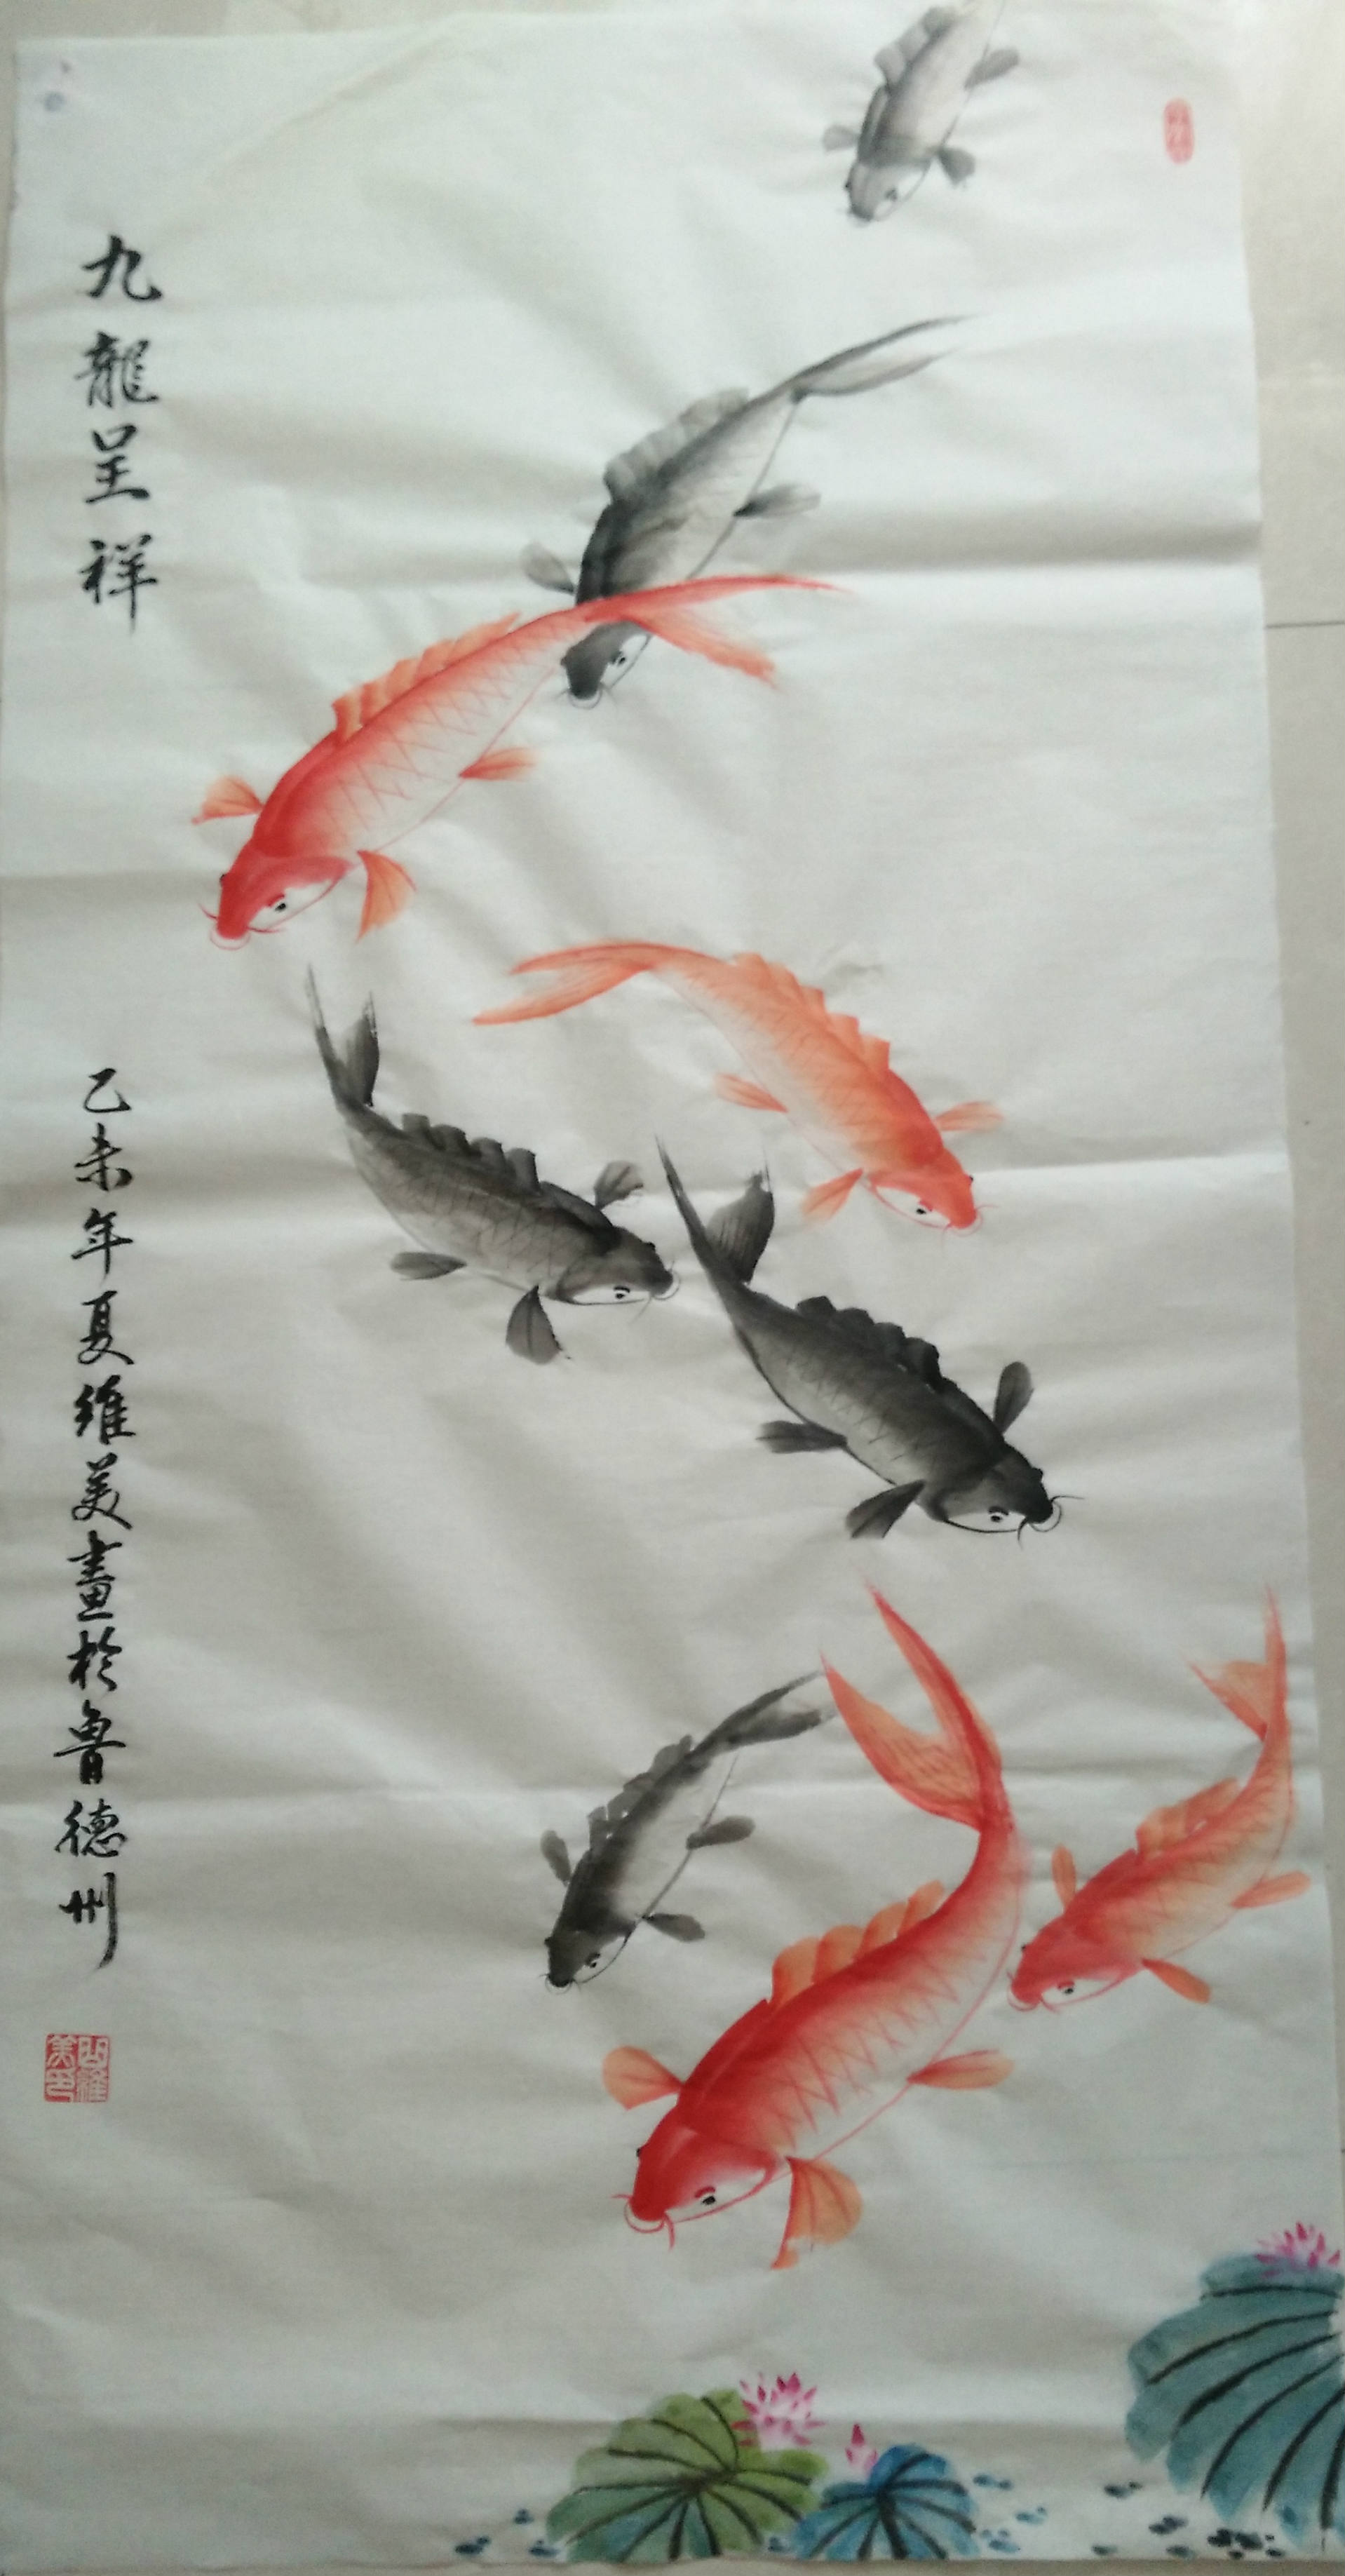 九龍呈祥
乙未年夏維美畫於魯德州